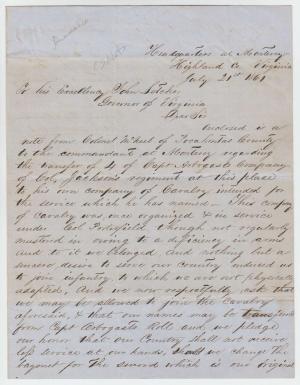 Headquarters at Monterey
Highland Co Virginia
July 21st 1861
To his Excellency John Letcher
Governor of Virginia
Dear Sir
Enclosed is a
note from Colonel McNeel of Pocahontas County
to the commandant at Monterey regarding
the transfer of Capt Arbogasts Company
of Col, Jackson's regiment at this place
to his own company of Cavalry intended for
the service which he has named – This company
of Cavalry was once organized & in service
under Col Porterfield though not regularly
mustered in owing to a deficiency in arms
and to it we belonged And nothing but a
sincere desire to serve our Country induced us
to join infantry to which we are not physically
adapted, And we now respectfully ask that
we may be allowed to join the Cavalry
aforesaid, & that our names may be transferred
from Capt Arbogasts Roll and we pledge
our honor that our Country shall not receive
less service at our hands, shall we change the
bayonet for the sword which is our original